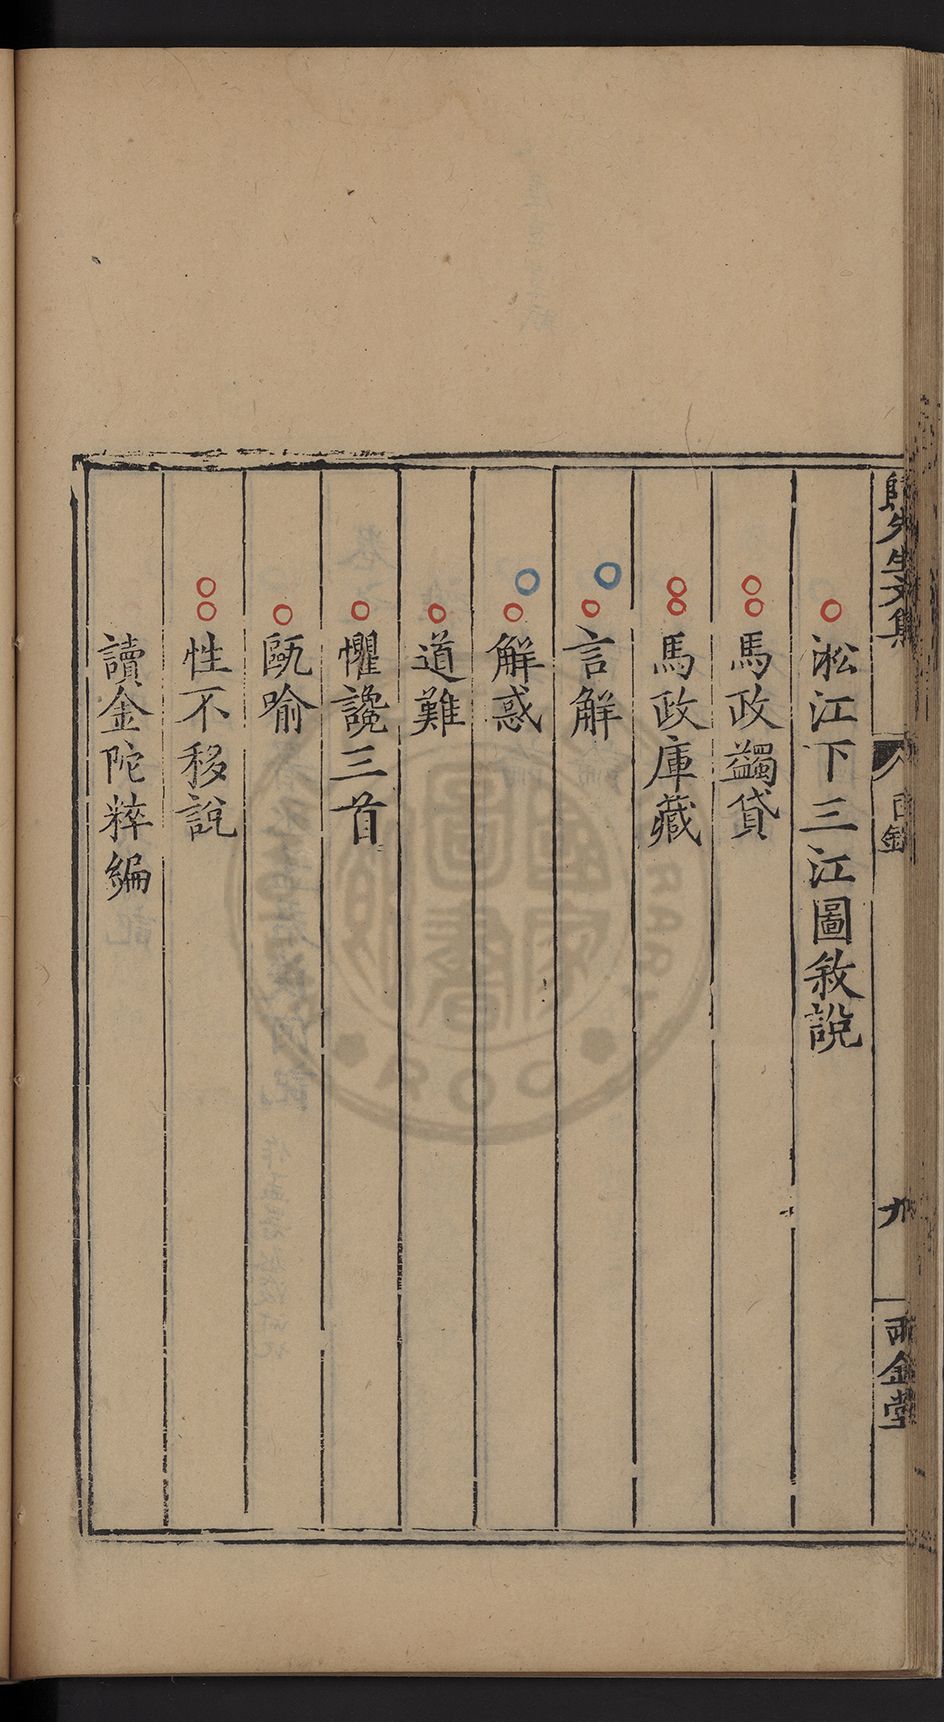 歸先生文集
目錄
九
雨金堂
淞江下三江圖敘說
馬政蠲貸
馬政庫藏
言解
解惑
道難
懼讒三首
甌喻
性不移說
讀金陀粹編